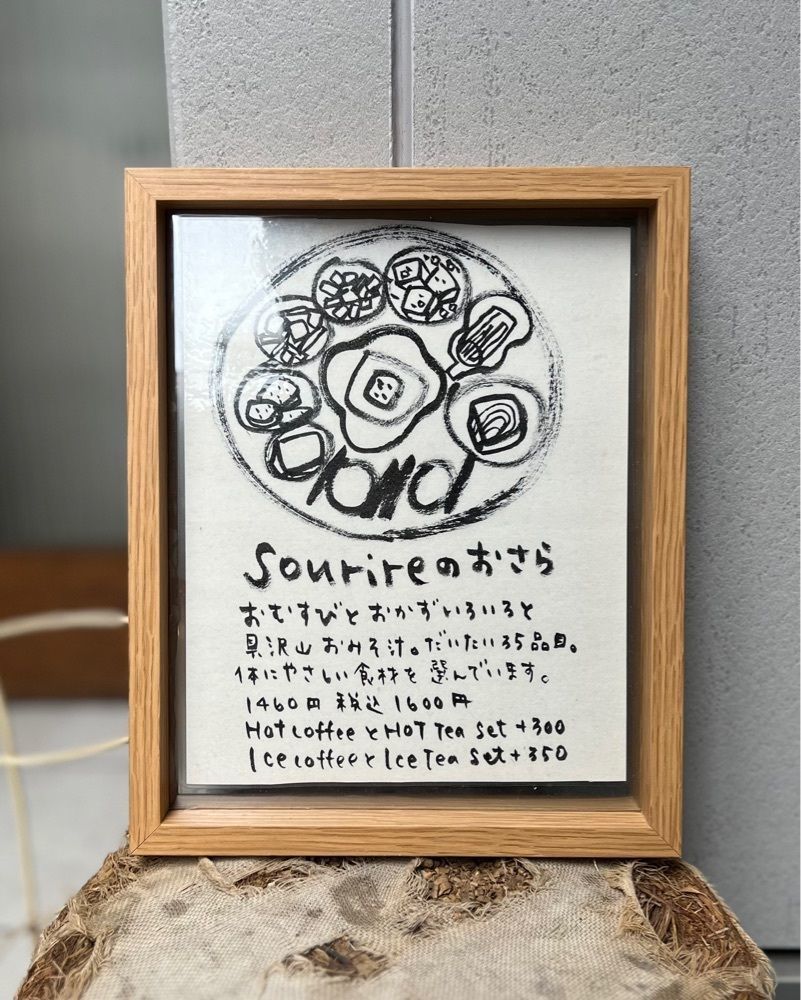 Sourireのおさら
おむすびとおかずいろいろと
具沢山おみそ汁。だいたい35品目。
体にやさしい食材を選んでいます。
1460円 税込1600円
Hot coffeeとHOT Tea set +300
Ice coffeeとIce Tea set +350